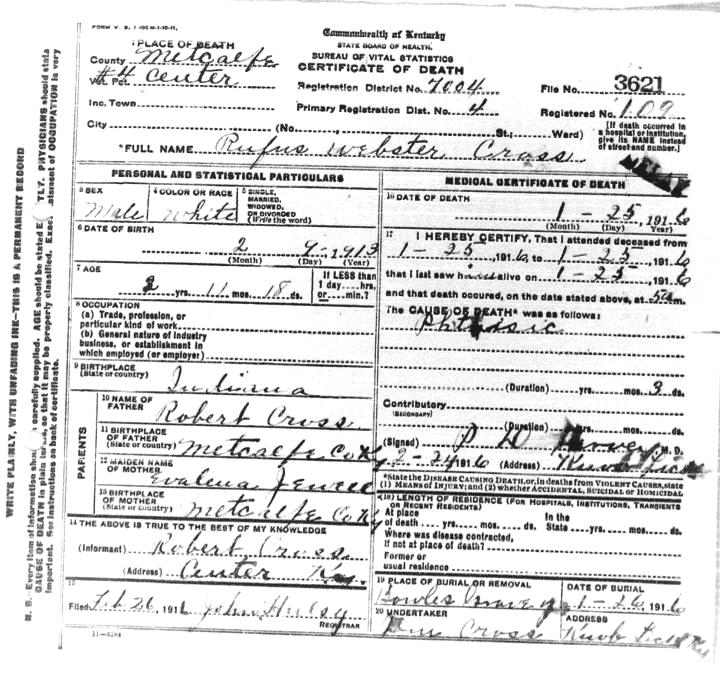 FORM V. S. 1-100M-1-10-11.
Commonwealth of Kentucky
STATE BOARD OF HEALTH.
BUREAU OF VITAL STATISTICS
CERTIFICATE OF DEATH
1 PLACE OF DEATH
County Metcalfe
Vot. Pct. #4 Center
Inc. Town
City (No. St.; Ward)
Registration District No. 7004
Primary Registration Dist. No. 4
File No. 3621
Registered No. 109
[If death occurred in a hospital or institution, give its NAME instead of street and number.]
*FULL NAME Rufus Webster Cross
DELAY
PERSONAL AND STATISTICAL PARTICULARS
3 SEX Male
4 COLOR OR RACE White
5 SINGLE, MARRIED, WIDOWED, OR DIVORCED (Write the word)
6 DATE OF BIRTH
2 9 1913
(Month) (Day) (Year)
7 AGE
2 yrs. 11 mos. 18 ds.
If LESS than 1 day....hrs. or....min.?
8 OCCUPATION
(a) Trade, profession, or particular kind of work
(b) General nature of industry business, or establishment in which employed (or employer)
9 BIRTHPLACE
(State or country) Indiana
PARENTS
10 NAME OF FATHER Robert Cross
11 BIRTHPLACE OF FATHER (State or country) Metcalfe Co Ky
12 MAIDEN NAME OF MOTHER Evalena Jewell
13 BIRTHPLACE OF MOTHER (State or country) Metcalfe Co Ky
14 THE ABOVE IS TRUE TO THE BEST OF MY KNOWLEDGE
(Informant) Robert Cross
(Address) Center Ky.
15
Filed Feb 26, 1916 John Hulsy
REGISTRAR
11-3184
MEDICAL CERTIFICATE OF DEATH
16 DATE OF DEATH
1 - 25, 1916
(Month) (Day) (Year)
17 I HEREBY CERTIFY, That I attended deceased from
1 - 25 1916, to 1 - 25, 1916
that I last saw him alive on 1 - 25 1916
and that death occured, on the date stated above, at 5 a m.
The CAUSE OF DEATH* was as follows:
Phthisic
(Duration) yrs. mos. 3 ds.
Contributory
(SECONDARY)
(Duration) yrs. mos. ds.
(Signed) P D M.D.
2-24 1916 (Address) Knob Lick
*State the DISEASE CAUSING DEATH, or, in deaths from VIOLENT CAUSES, state
(1) MEANS OF INJURY; and (2) whether ACCIDENTAL, SUICIDAL or HOMICIDAL
(18) LENGTH OF RESIDENCE (FOR HOSPITALS, INSTITUTIONS, TRANSIENTS OR RECENT RESIDENTS)
At place of death yrs. mos. ds. In the State yrs. mos. ds.
Where was disease contracted, If not at place of death?
Former or usual residence
19 PLACE OF BURIAL OR REMOVAL
Bowles Grave y
DATE OF BURIAL
1-26 1916
20 UNDERTAKER
Cross
ADDRESS
Knob Lick Ky
WRITE PLAINLY, WITH UNFADING INK—THIS IS A PERMANENT RECORD
N. B.—Every item of information should be carefully supplied. AGE should be stated TLY. PHYSICIANS should state
CAUSE OF DEATH in plain terms, so that it may be properly classified. Exact statement of OCCUPATION is very
important. See instructions on back of certificate.